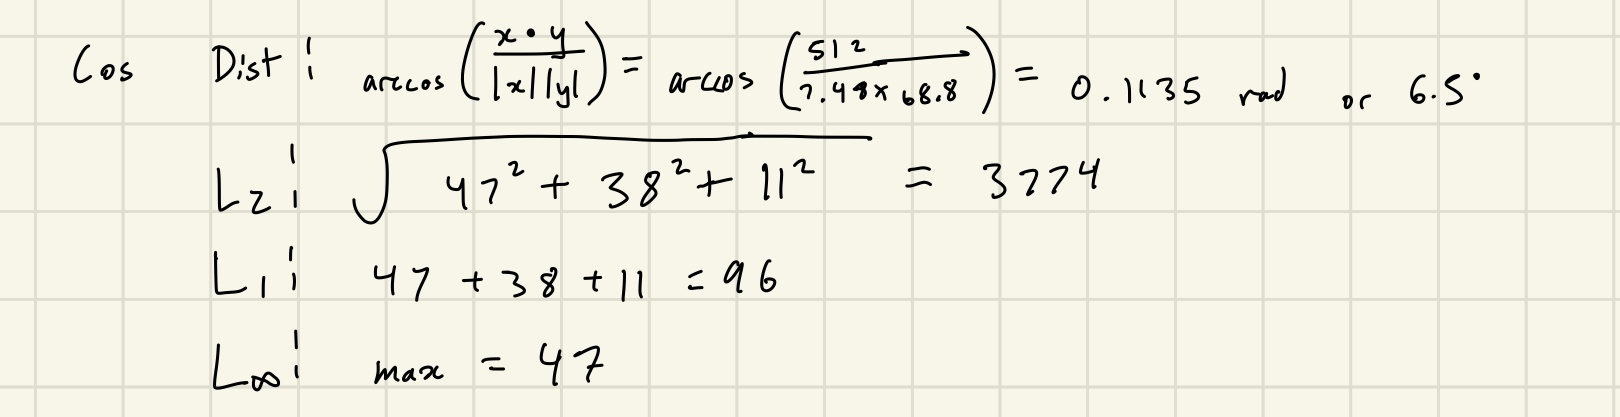 Cos Dist: arccos(x • y / |x||y|) = arccos(512 / 7.48 × 68.8) = 0.1135 rad or 6.5°
L2: √47² + 38² + 11² = 3774
L1: 47 + 38 + 11 = 96
L∞: max = 47